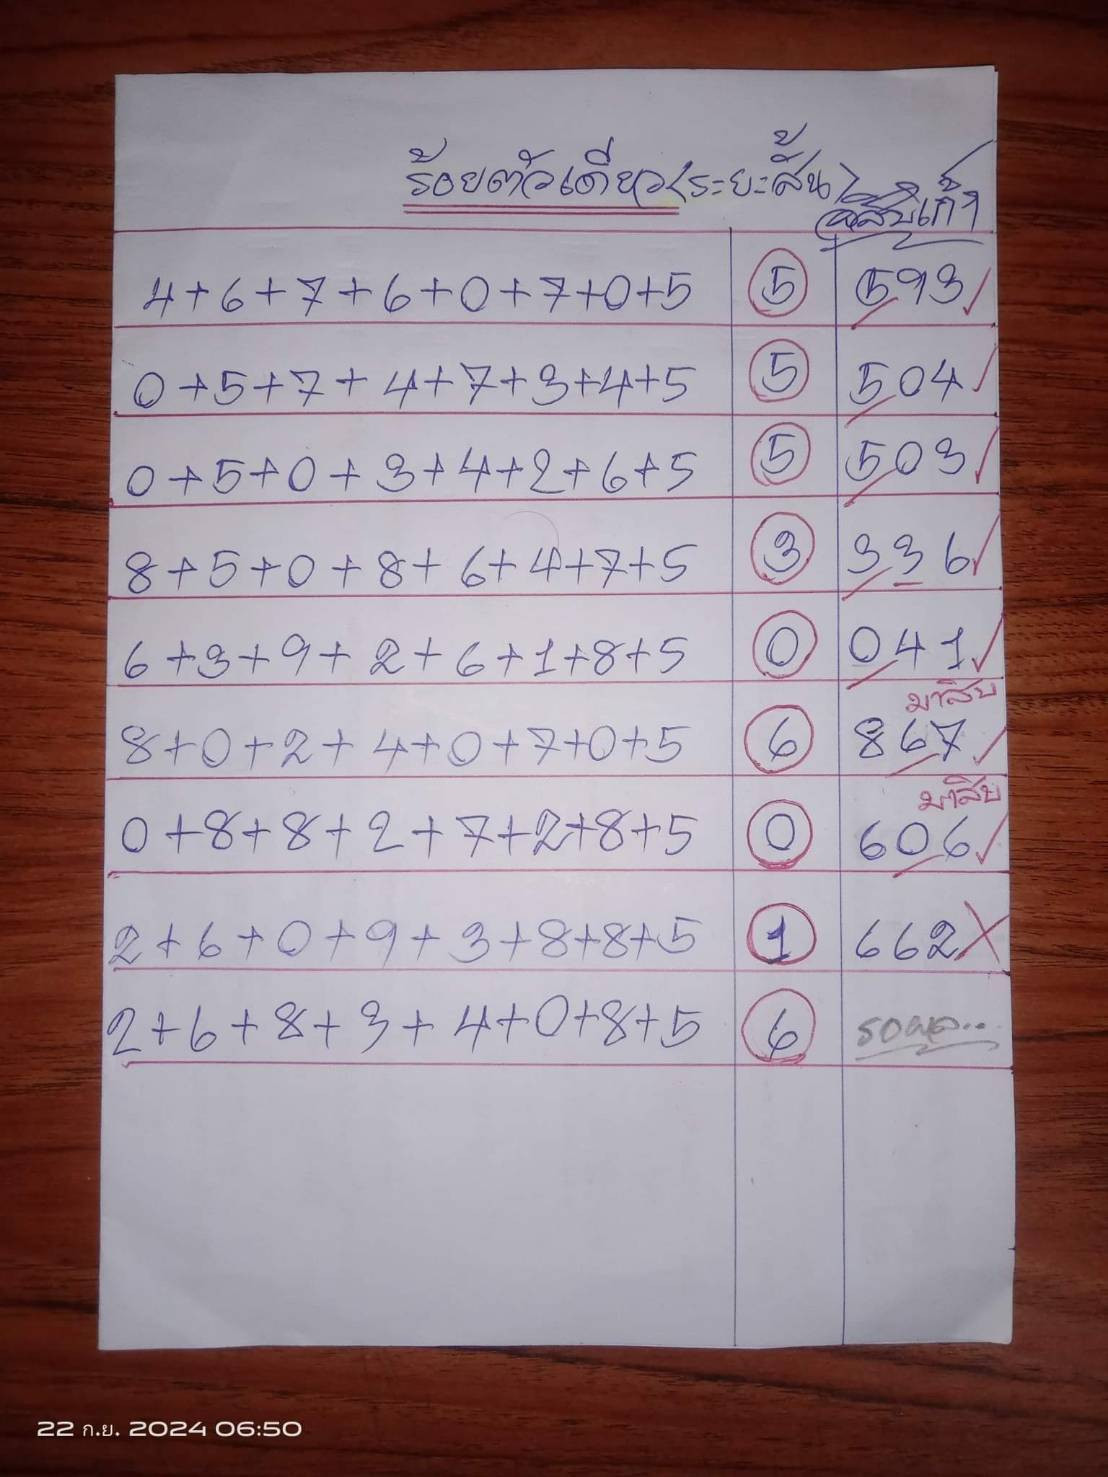 ร้อยตัวเดียว(ระยะสั้น)
สิบเก้า
4+6+7+6+0+7+0+5 5 593✓
0+5+7+4+7+3+4+5 5 504✓
0+5+0+3+4+2+6+5 5 503✓
8+5+0+8+6+4+7+5 3 336✓
6+3+9+2+6+1+8+5 0 041✓
มาสิบ
8+0+2+4+0+7+0+5 6 867✓
มาสิบ
0+8+8+2+7+2+8+5 0 606✓
2+6+0+9+3+8+8+5 1 662X
2+6+8+3+4+0+8+5 6 รอผล...
22 ก.ย. 2024 06:50